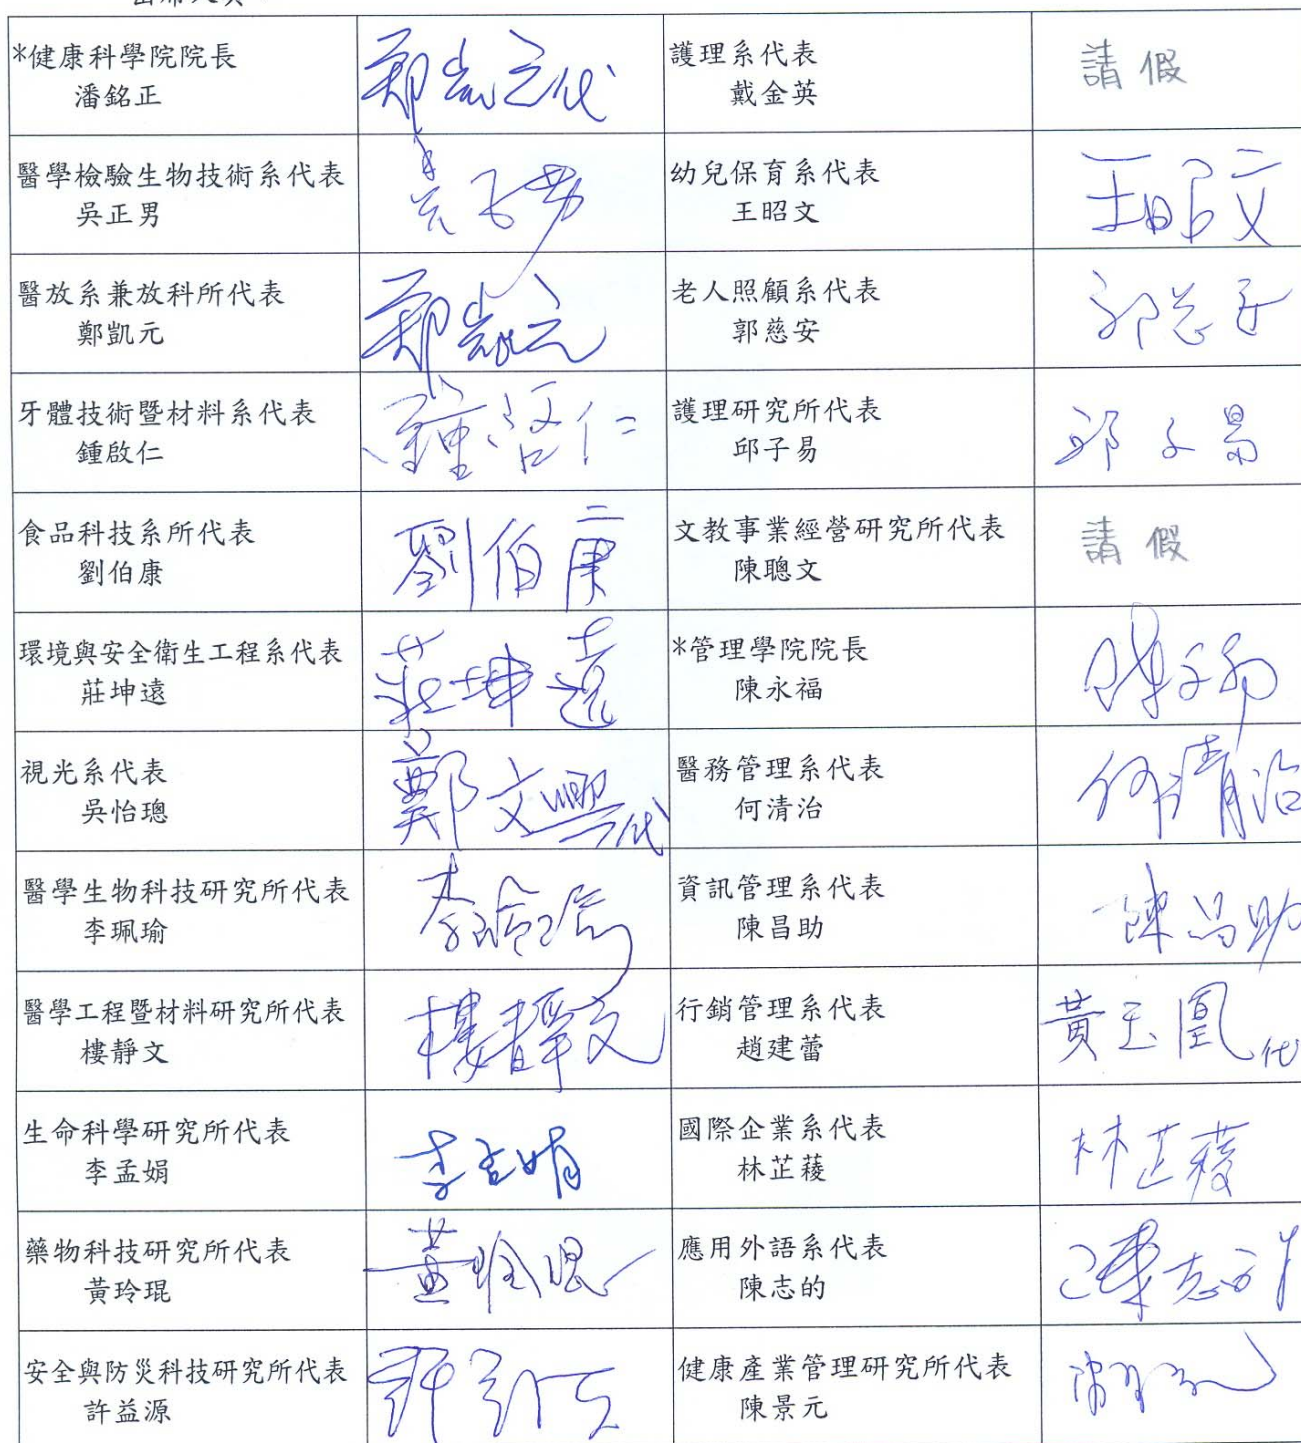 *健康科學院院長
潘銘正
鄭凱元代
護理系代表
戴金英
請假
醫學檢驗生物技術系代表
吳正男
幼兒保育系代表
王昭文
王昭文
醫放系兼放科所代表
鄭凱元
鄭凱元
老人照顧系代表
郭慈安
郭慈安
牙體技術暨材料系代表
鍾啟仁
鍾啟仁
護理研究所代表
邱子易
邱子易
食品科技系所代表
劉伯康
劉伯康
文教事業經營研究所代表
陳聰文
請假
環境與安全衛生工程系代表
莊坤遠
莊坤遠
*管理學院院長
陳永福
視光系代表
吳怡璁
鄭文興代
醫務管理系代表
何清治
何清治
醫學生物科技研究所代表
李珮瑜
資訊管理系代表
陳昌助
陳昌助
醫學工程暨材料研究所代表
樓靜文
樓靜文
行銷管理系代表
趙建蕾
黃玉凰代
生命科學研究所代表
李孟娟
李孟娟
國際企業系代表
林芷薐
林芷薐
藥物科技研究所代表
黃玲琨
黃玲琨
應用外語系代表
陳志的
陳志的
安全與防災科技研究所代表
許益源
健康產業管理研究所代表
陳景元